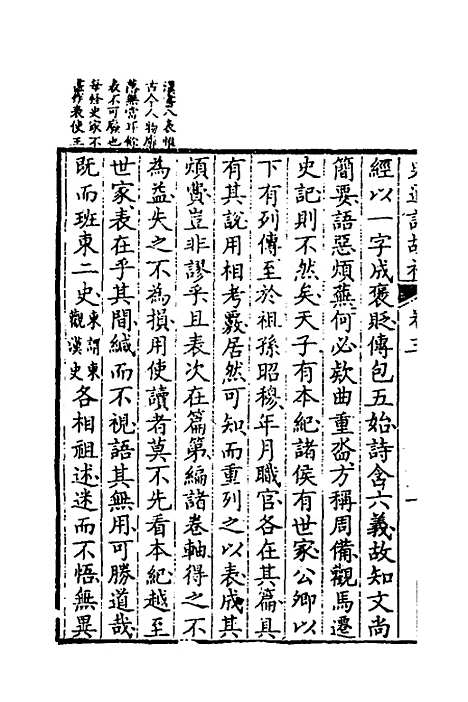 史通訓故補 卷三 一
漢書八表惟
古今人物廓
落無當耳餘
表不可廢也
每怪史家不
作表使王
經以一字成褒貶傳包五始詩含六義故知文尚
簡要語惡煩蕪何必欵曲重沓方稱周備觀馬遷
史記則不然矣天子有本紀諸侯有世家公卿以
下有列傳至於祖孫昭穆年月職官各在其篇具
有其說用相考覈居然可知而重列之以表成其
煩費豈非謬乎且表次在篇第編諸卷軸得之不
為益失之不為損用使讀者莫不先看本紀越至
世家表在乎其間緘而不視語其無用可勝道哉
既而班東二史東謂東觀漢史各相祖述迷而不悟無異